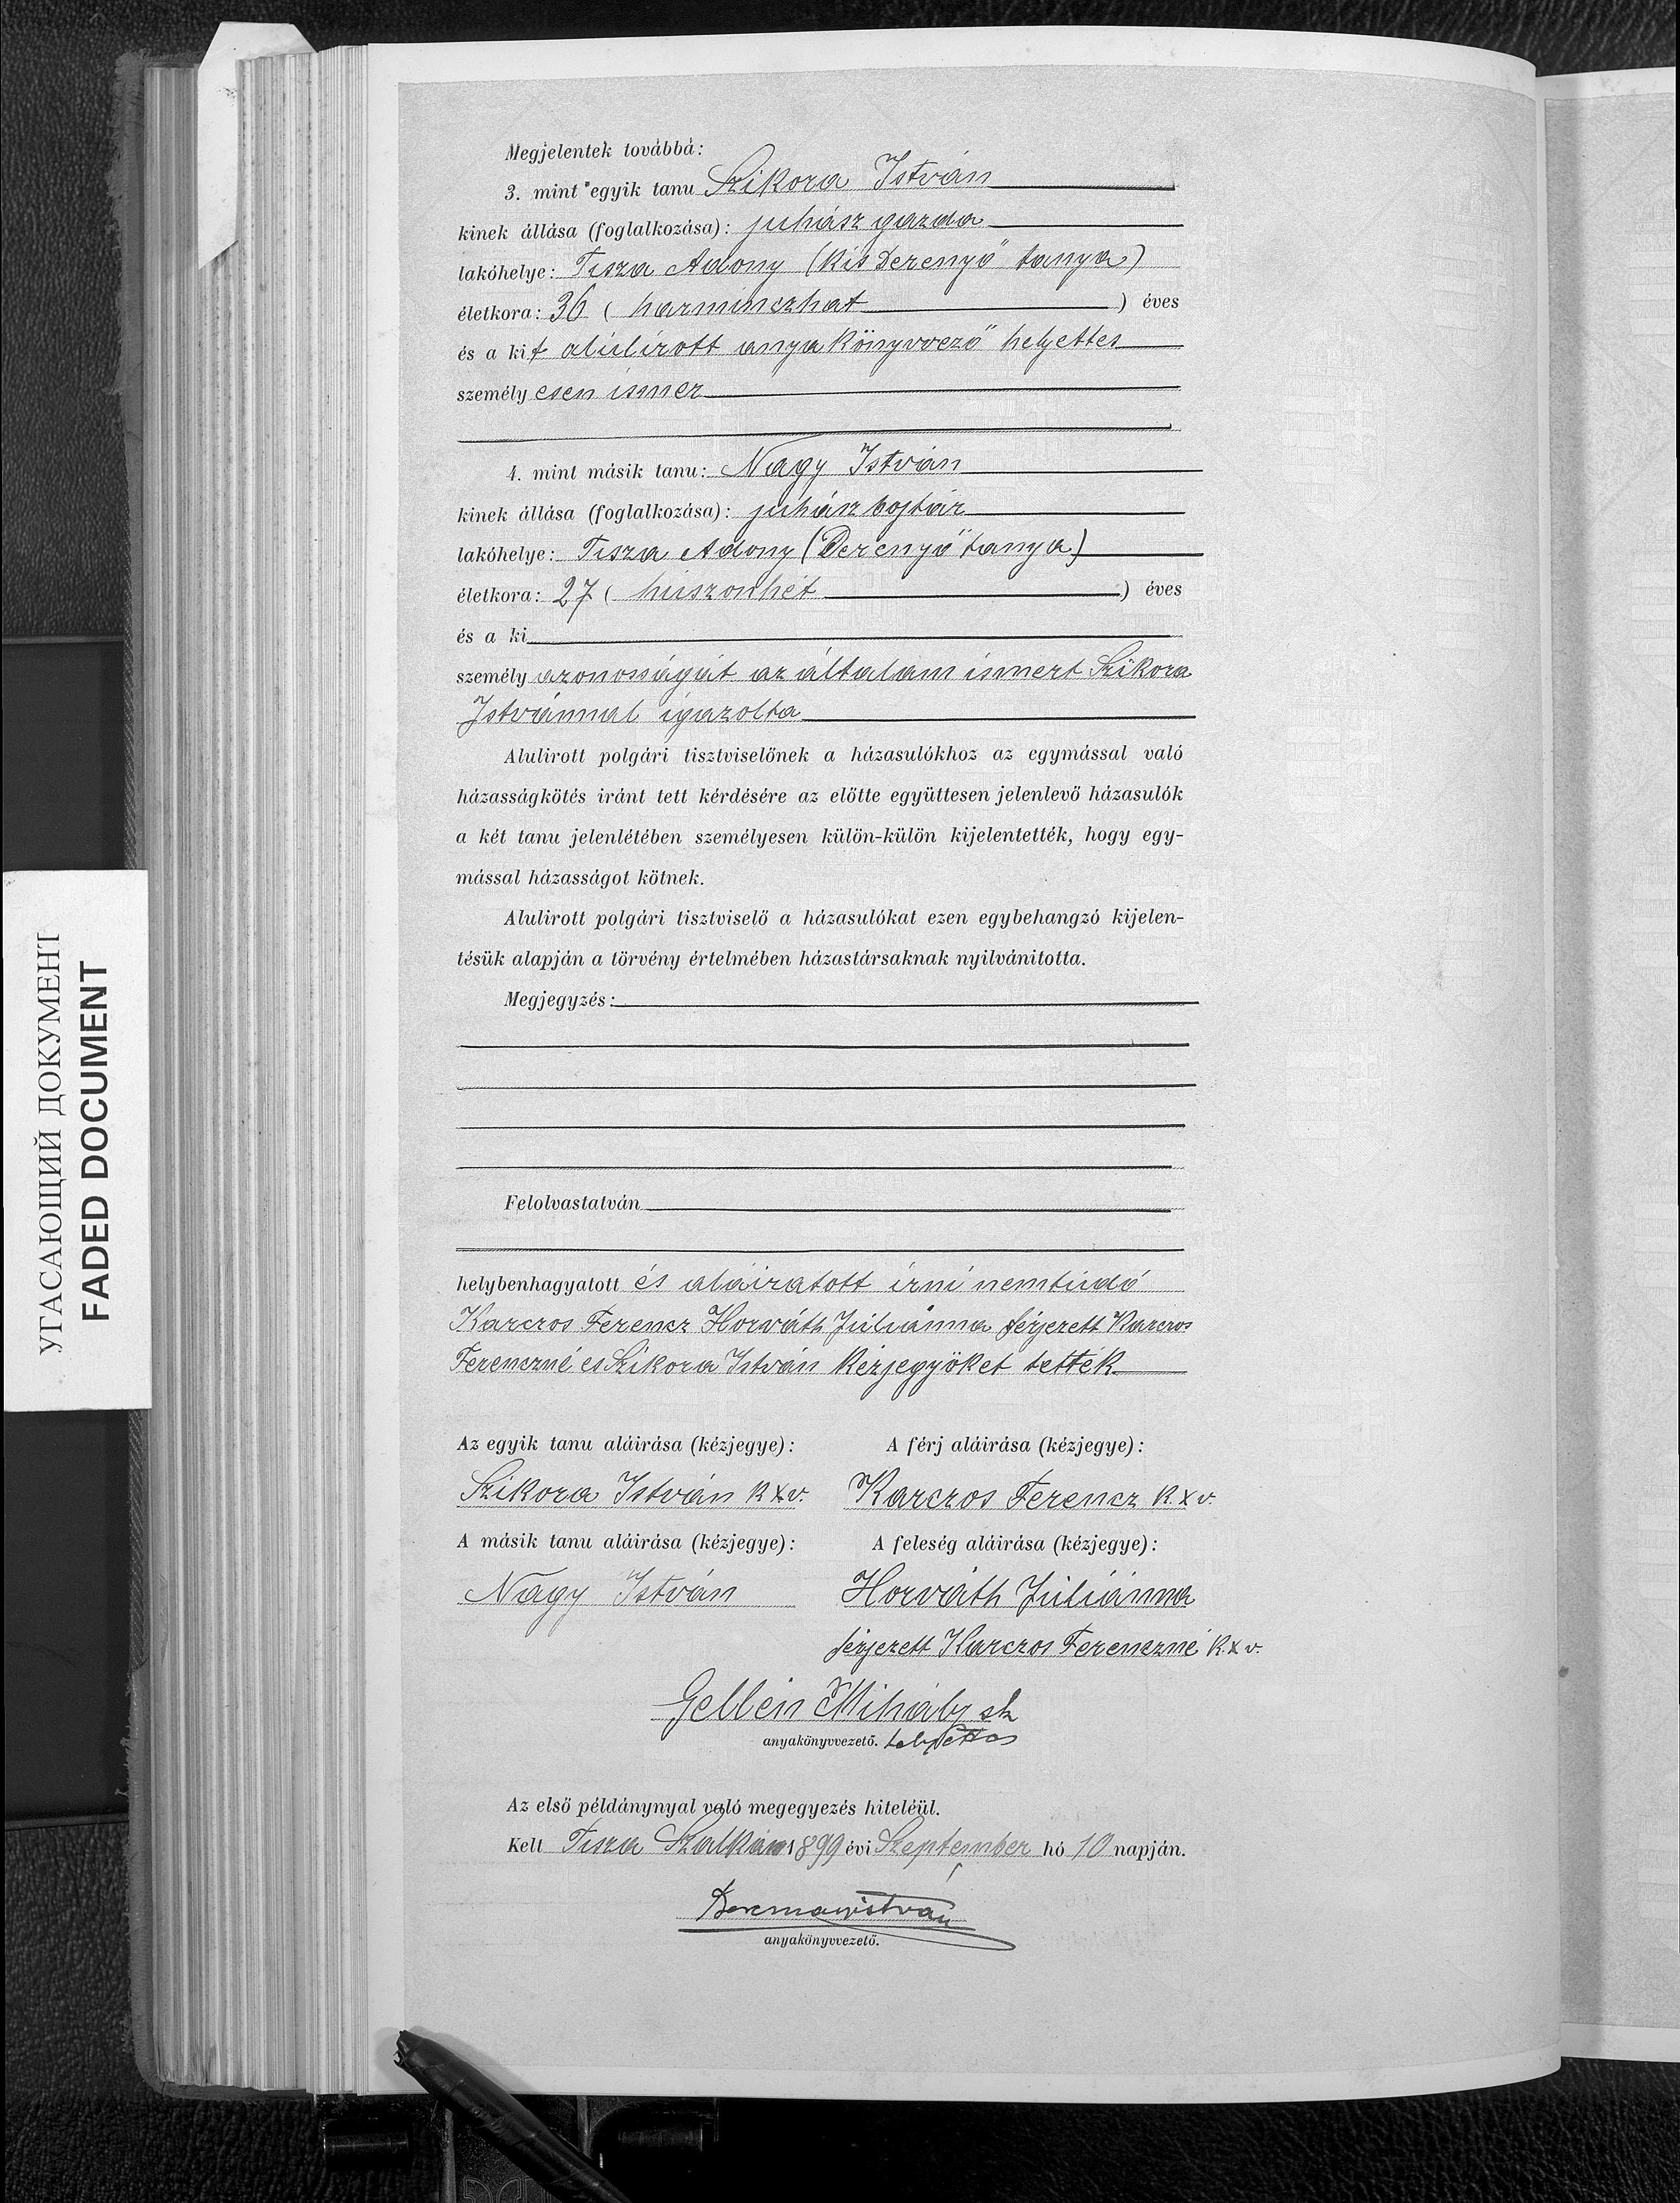 УГАСАЮЩИЙ ДОКУМЕНТ
FADED DOCUMENT
Megjelentek továbbá:
3. mint egyik tanu Szikora István
kinek állása (foglalkozása): juhász gazda
lakóhelye: Tisza Adony (Kis Derenyő tanya)
életkora: 36 (harminczhat) éves
és a kit alúlírott anyakönyvvező helyettes
személyesen ismer
4. mint másik tanu: Nagy István
kinek állása (foglalkozása): juhász bojtár
lakóhelye: Tisza Adony (Derenyő tanya)
életkora: 27 (húszonhét) éves
és a ki
személy azonosságát az általam ismert Szikora
Istvánnal igazolta
Alulirott polgári tisztviselőnek a házasulókhoz az egymással való
házasságkötés iránt tett kérdésére az előtte együttesen jelenlevő házasulók
a két tanu jelenlétében személyesen külön-külön kijelentették, hogy egy-
mással házasságot kötnek.
Alulirott polgári tisztviselő a házasulókat ezen egybehangzó kijelen-
tésük alapján a törvény értelmében házastársaknak nyilvánitotta.
Megjegyzés:
Felolvastatván
helybenhagyatott és aláiratott irni nemtúdó
Karczos Ferencz Horváth Júliánna férjezett Karczos
Ferenczné és Szikora István kézjegyöket tették
Az egyik tanu aláirása (kézjegye): A férj aláirása (kézjegye):
Szikora István k x v. Karczos Ferencz k. x v.
A másik tanu aláirása (kézjegye): A feleség aláirása (kézjegye):
Nagy István Horváth Júliánna
férjezett Karczos Ferenczné k. x v.
Gellén Mihály sk
anyakönyvvezető. helyettes
Az első példánynyal való megegyezés hiteléül.
Kelt Tisza Szalkán 1899 évi Szeptember hó 10 napján.
anyakönyvvezető.